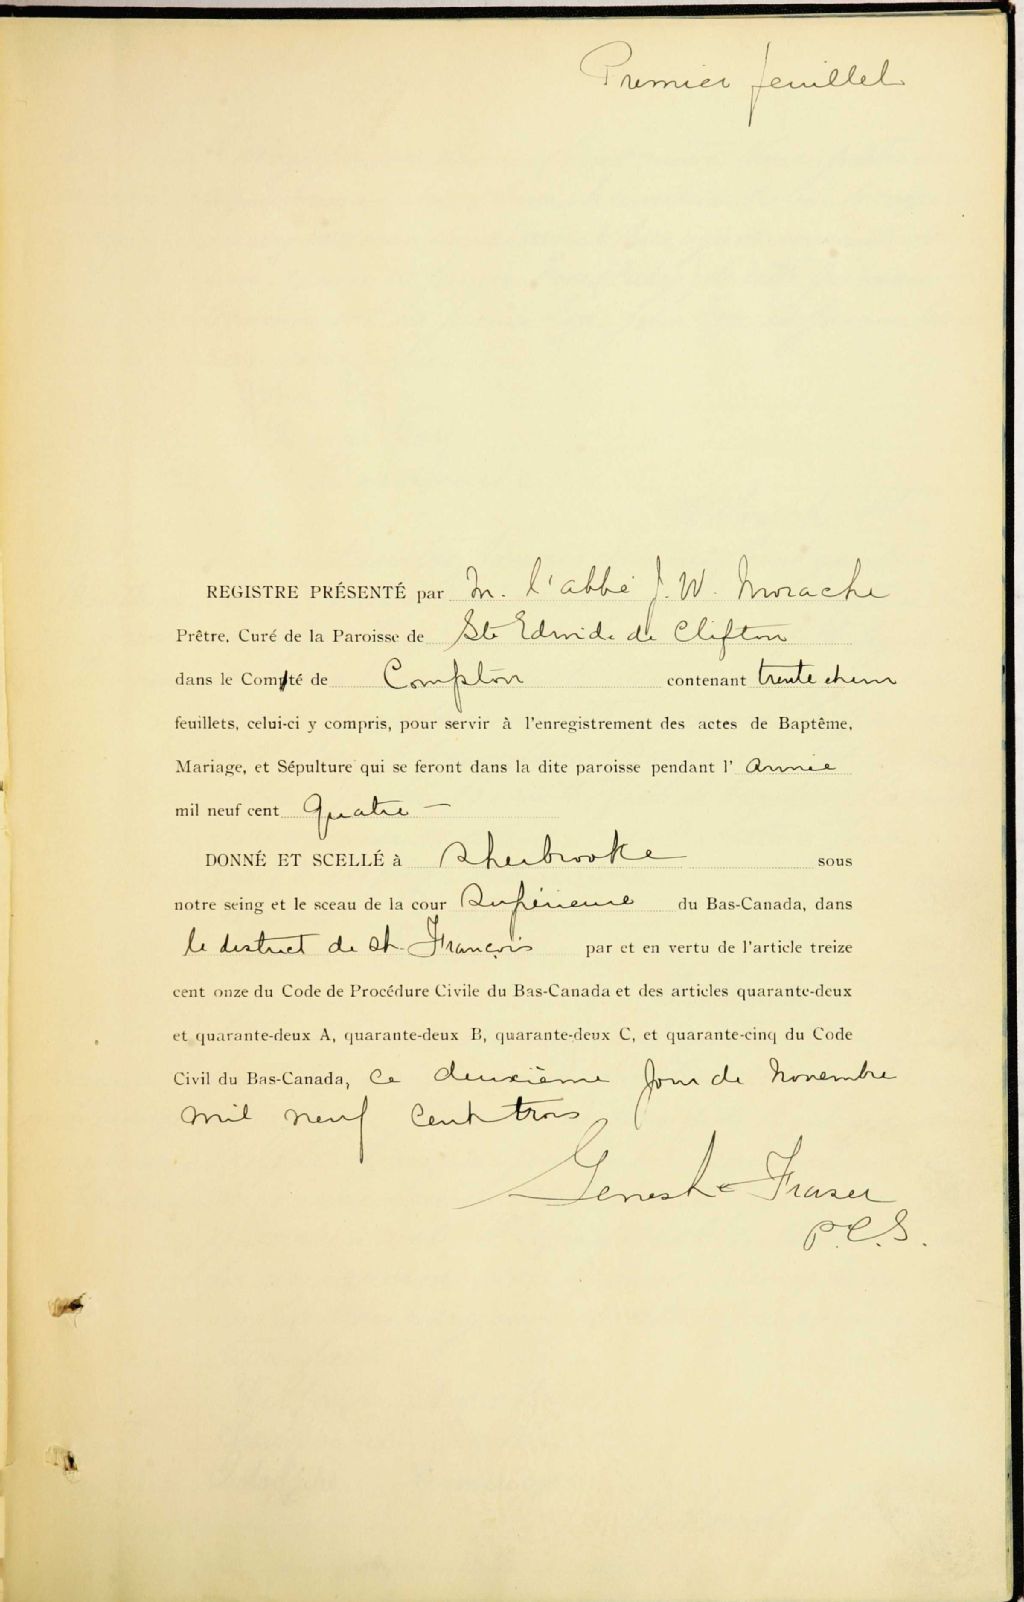 Premier feuillet
REGISTRE PRÉSENTÉ par M. l'abbé J. W. Morache
Prêtre, Curé de la Paroisse de Ste Edwide de Clifton
dans le Comté de Compton contenant trente et un
feuillets, celui-ci y compris, pour servir à l'enregistrement des actes de Baptême,
Mariage, et Sépulture qui se feront dans la dite paroisse pendant l' Année
mil neuf cent Quatre —
DONNÉ ET SCELLÉ à Sherbrooke sous
notre seing et le sceau de la cour Supérieure du Bas-Canada, dans
le district de St. François par et en vertu de l'article treize
cent onze du Code de Procédure Civile du Bas-Canada et des articles quarante-deux
et quarante-deux A, quarante-deux B, quarante-deux C, et quarante-cinq du Code
Civil du Bas-Canada, ce deuxième jour de Novembre
mil neuf cent trois
Genest & Fraser
P.C.S.